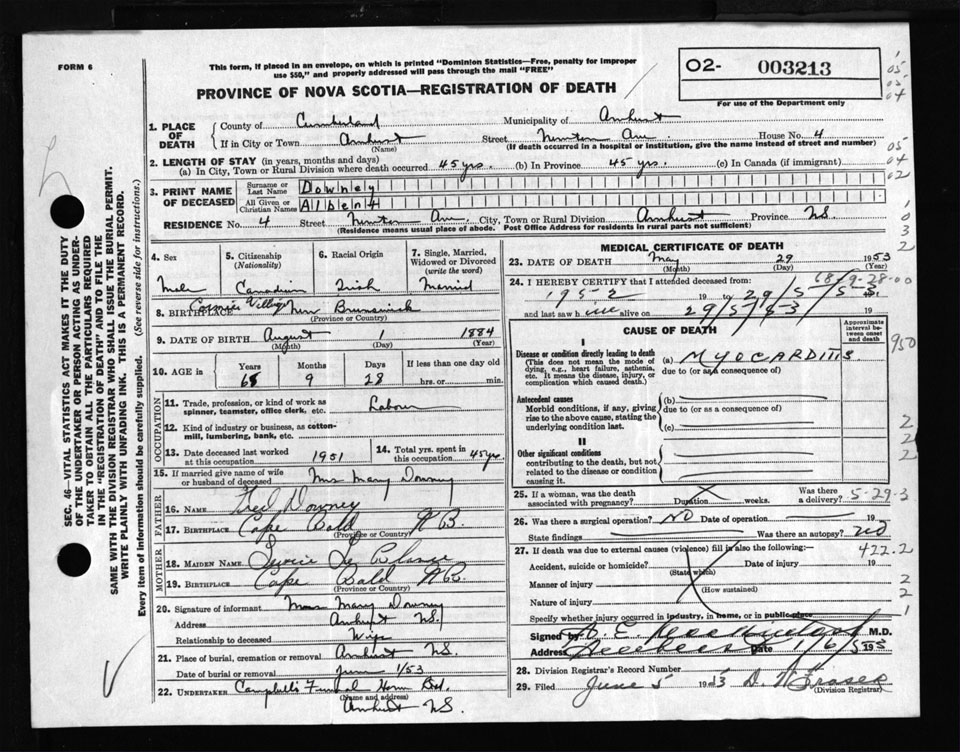 FORM 6
This form, if placed in an envelope, on which is printed "Dominion Statistics—Free, penalty for improper
use $50," and properly addressed will pass through the mail "FREE"
O2- 003213
For use of the Department only
PROVINCE OF NOVA SCOTIA—REGISTRATION OF DEATH
1. PLACE OF DEATH
County of Cumberland Municipality of Amherst
If in City or Town Amherst Street Newton Ave. House No. 4
(Name) (If death occurred in a hospital or institution, give the name instead of street and number)
2. LENGTH OF STAY (in years, months and days)
(a) In City, Town or Rural Division where death occurred 45 yrs. (b) In Province 45 yrs. (c) In Canada (if immigrant)
3. PRINT NAME OF DECEASED
Surname or Last Name Downey
All Given or Christian Names Albert
RESIDENCE No. 4 Street Newton Ave. City, Town or Rural Division Amherst Province N.S.
(Residence means usual place of abode. Post Office Address for residents in rural parts not sufficient)
4. Sex
Male
5. Citizenship (Nationality)
Canadian
6. Racial Origin
Irish
7. Single, Married, Widowed or Divorced (write the word)
Married
8. BIRTHPLACE Village New Brunswick
(Province or Country)
9. DATE OF BIRTH August 1 1884
(Month) (Day) (Year)
10. AGE in Years Months Days If less than one day old
68 9 28 hrs. or min.
OCCUPATION
11. Trade, profession, or kind of work as spinner, teamster, office clerk, etc. Labour
12. Kind of industry or business, as cotton-mill, lumbering, bank, etc.
13. Date deceased last worked at this occupation 1951
14. Total yrs. spent in this occupation 45 yrs.
15. If married give name of wife or husband of deceased Mrs Mary Downey
FATHER
16. NAME Fred Downey
17. BIRTHPLACE Cape Bald N.B.
(Province or Country)
MOTHER
18. MAIDEN NAME Le Blanc
19. BIRTHPLACE Cape Bald N.B.
(Province or Country)
20. Signature of informant Mrs Mary Downey
Address Amherst N.S.
Relationship to deceased Wife
21. Place of burial, cremation or removal Amherst N.S.
Date of burial or removal June 1/53
22. UNDERTAKER Campbell's Funeral Home Ltd.
(Name and address)
Amherst N.S.
MEDICAL CERTIFICATE OF DEATH
23. DATE OF DEATH May 29 1953
(Month) (Day) (Year)
24. I HEREBY CERTIFY that I attended deceased from: 68/9-28-00
1952 19 to 29/5/53 19
and last saw him alive on 29/5/53 19
CAUSE OF DEATH
Approximate interval between onset and death
950
I
Disease or condition directly leading to death (a) MYOCARDITIS
(This does not mean the mode of dying, e.g., heart failure, asthenia, etc. It means the disease, injury, or complication which caused death.)
due to (or as a consequence of)
Antecedent causes (b)
Morbid conditions, if any, giving rise to the above cause, stating the underlying condition last.
due to (or as a consequence of)
(c)
II
Other significant conditions contributing to the death, but not related to the disease or condition causing it.
25. If a woman, was the death associated with pregnancy? Duration weeks. Was there a delivery? 5-29-3
26. Was there a surgical operation? NO Date of operation 19
State findings Was there an autopsy? NO
27. If death was due to external causes (violence) fill in also the following: 422.2
Accident, suicide or homicide? Date of injury 19
(State which)
Manner of injury
(How sustained)
Nature of injury
Specify whether injury occurred in industry, in home, or in public place
Signed by M.D.
Address Date 1/6/53 19
28. Division Registrar's Record Number
29. Filed June 5 1953 D. Fraser
(Division Registrar)
SEC. 46—VITAL STATISTICS ACT MAKES IT THE DUTY
OF THE UNDERTAKER OR PERSON ACTING AS UNDER-
TAKER TO OBTAIN ALL THE PARTICULARS REQUIRED
IN THE "REGISTRATION OF DEATH" AND TO FILE THE
SAME WITH THE DIVISION REGISTRAR WHO SHALL ISSUE THE BURIAL PERMIT.
WRITE PLAINLY WITH UNFADING INK. THIS IS A PERMANENT RECORD.
Every item of information should be carefully supplied. (See reverse side for instructions.)